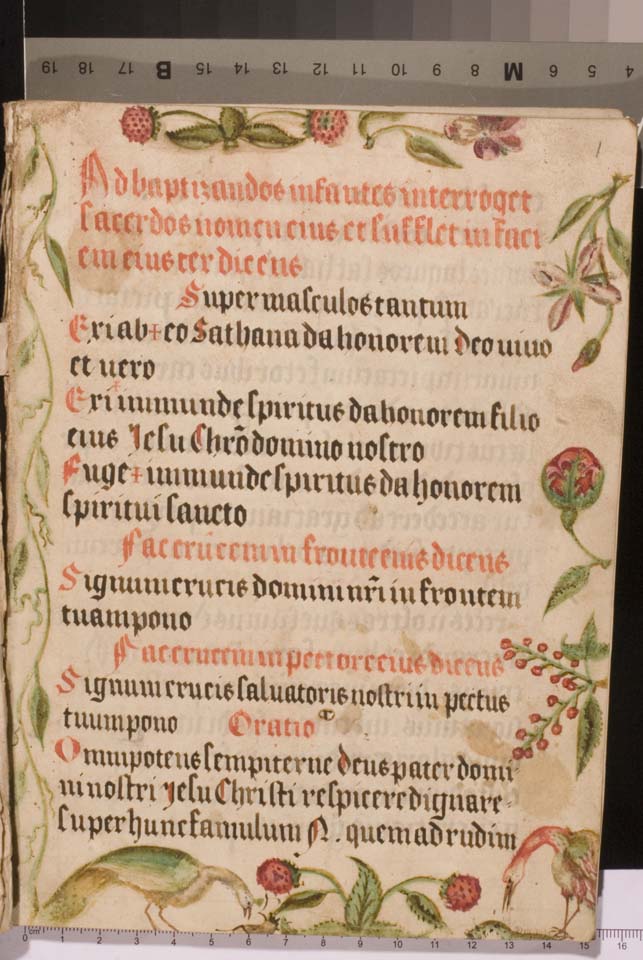 19 18 17 B 15 14 13 12 11 10 9 8 M 6 5 4
1
Ad baptizandos infantes interroget
sacerdos nomen eius et sufflet in faci
em eius ter dicens
Super masculos tantum
Exi ab + eo Sathana da honorem deo uiuo
et uero
Exi inmunde spiritus da honorem filio
eius Jesu Chrō domino nostro
Fuge + inmunde spiritus da honorem
spiritui sancto
Fac crucem in fronte eius dicens
Signum crucis domini nr̄i in frontem
tuam pono
Fac crucem in pectore eius dicens
Signum crucis saluatoris nostri in pectus
tuum pono Oratio
Omnipotens sempiterne deus pater domi
ni nostri Jesu Christi respicere dignare
super hunc famulum N. quem ad rudim
0 cm 1 2 3 4 5 6 7 8 9 10 11 12 13 14 15 16